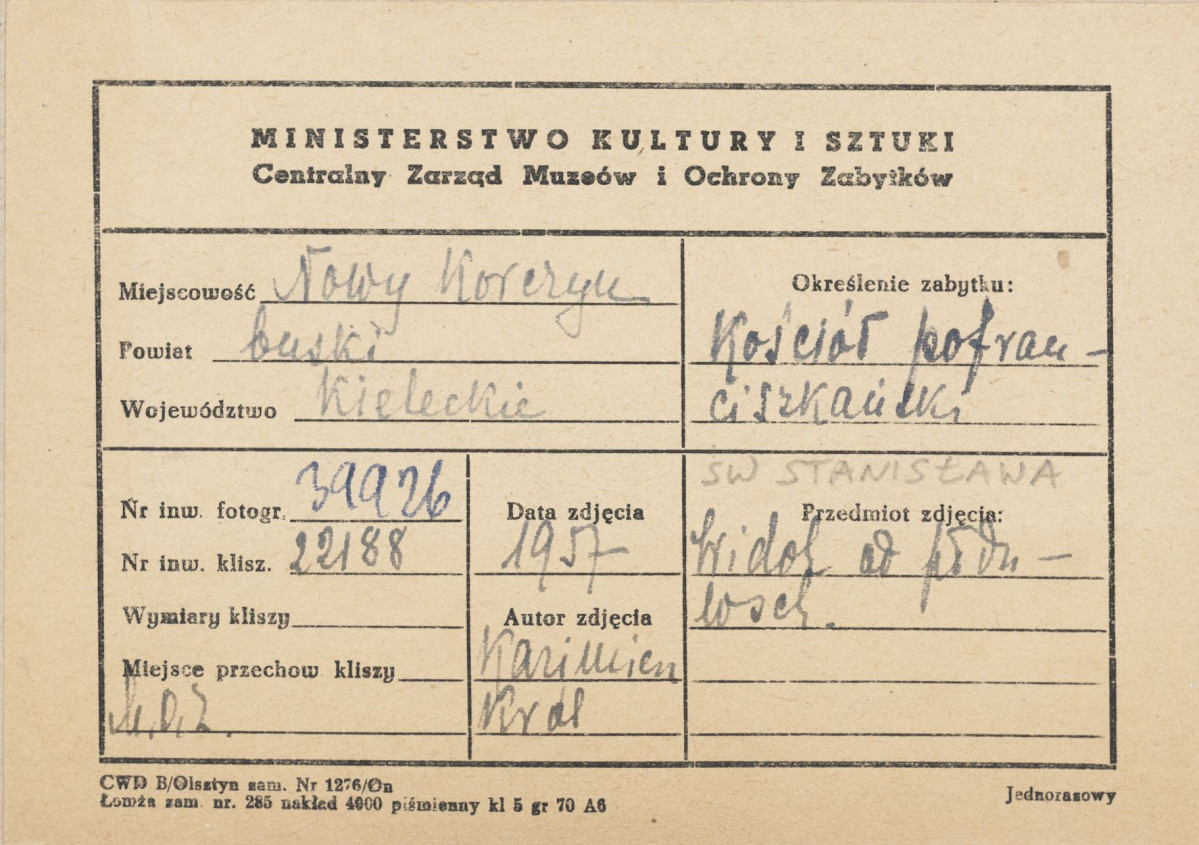 MINISTERSTWO KULTURY I SZTUKI
Centralny Zarząd Muzeów i Ochrony Zabytków
Miejscowość Nowy Korczyn
Powiat buski
Województwo Kieleckie
Określenie zabytku:
Kościół pofran-
ciszkański
ŚW STANISŁAWA
Nr inw. fotogr. 39926
Nr inw. klisz. 22188
Wymiary kliszy
Miejsce przechow kliszy
M.O.Z.
Data zdjęcia
1957
Autor zdjęcia
Kazimierz
Król
Przedmiot zdjęcia:
Widok od płdn-
wsch.
CWD B/Olsztyn zam. Nr 1276/On
Łomża zam. nr. 285 nakład 4000 piśmienny kl 5 gr 70 A6
Jednorazowy